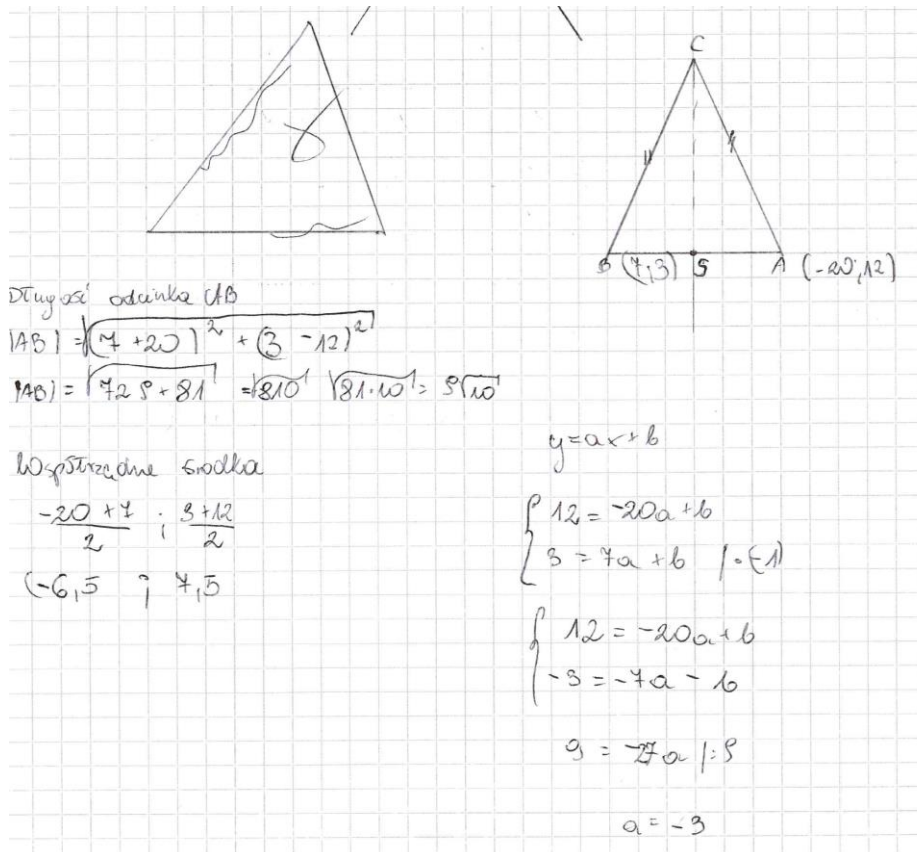 C
B (7,3) S A (-20,12)
Długość odcinka AB
|AB| = √(7+20)² + (3-12)²
|AB| = √729+81 = √810 √81·10 = 9√10
Współrzędne środka
-20+7/2 ; 3+12/2
(-6,5 ; 7,5
y=ax+b
12 = -20a+b
3 = 7a+b /·(-1)
12 = -20a+b
-3 = -7a-b
9 = -27a /:9
a = -3